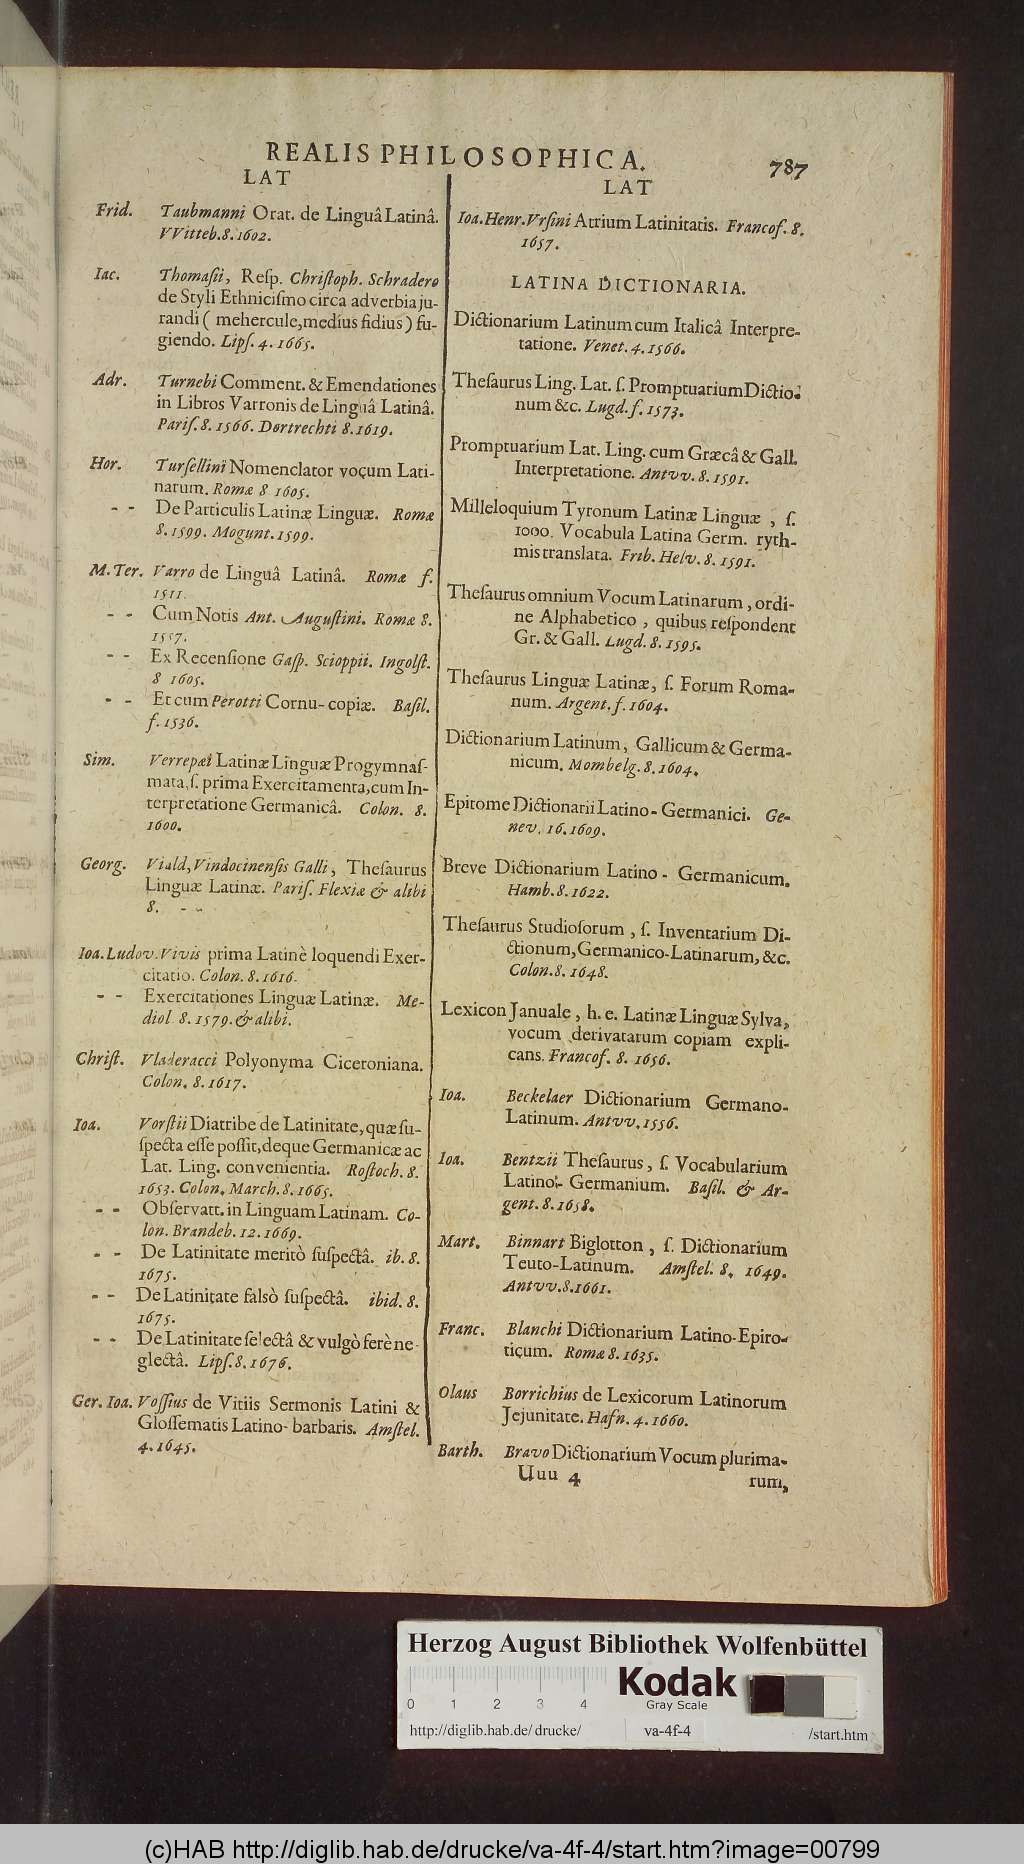 REALIS PHILOSOPHICA.
787
LAT
Frid. Taubmanni Orat. de Linguâ Latinâ.
VVitteb. 8. 1602.
Iac. Thomasii, Resp. Christoph. Schradero
de Styli Ethnicismo circa adverbia ju-
randi (mehercule, medius fidius) fu-
giendo. Lips. 4. 1665.
Adr. Turnebi Comment. & Emendationes
in Libros Varronis de Linguâ Latinâ.
Paris. 8. 1566. Dortrechti 8. 1619.
Hor. Tursellini Nomenclator voçum Lati-
narum. Romæ 8 1605.
- - De Particulis Latinæ Linguæ. Romæ
8. 1599. Mogunt. 1599.
M. Ter. Varro de Linguâ Latinâ. Romæ f.
1511.
- - Cum Notis Ant. Augustini. Romæ 8.
1557.
- - Ex Recensione Gasp. Scioppii. Ingolst.
8 1605.
- - Et cum Perotti Cornu-copiæ. Basil.
f. 1536.
Sim. Verrepæi Latinæ Linguæ Progymnas-
mata, s. prima Exercitamenta, cum In-
terpretatione Germanicâ. Colon. 8.
1600.
Georg. Viald, Vindocinensis Galli, Thesaurus
Linguæ Latinæ. Paris. Flexiæ & alibi
8. - -
Ioa. Ludov. Vivis prima Latinè loquendi Exer-
citatio. Colon. 8. 1616.
- - Exercitationes Linguæ Latinæ. Me-
diol. 8. 1579. & alibi.
Christ. Vladeracci Polyonyma Ciceroniana.
Colon. 8. 1617.
Ioa. Vorstii Diatribe de Latinitate, quæ su-
specta esse possit, deque Germanicæ ac
Lat. Ling. convenientia. Rostoch. 8.
1653. Colon. March. 8. 1665.
- - Observatt. in Linguam Latinam. Co-
lon. Brandeb. 12. 1669.
- - De Latinitate meritò suspectâ. ib. 8.
1675.
- - De Latinitate falsò suspectâ. ibid. 8.
1675.
- - De Latinitate selectâ & vulgò ferè ne-
glectâ. Lips. 8. 1676.
Ger. Ioa. Vossius de Vitiis Sermonis Latini &
Glossematis Latino-barbaris. Amstel.
4. 1645.
LAT
Ioa. Henr. Vrsini Atrium Latinitatis. Francof. 8.
1657.
LATINA DICTIONARIA.
Dictionarium Latinum cum Italicâ Interpre-
tatione. Venet. 4. 1566.
Thesaurus Ling. Lat. s. Promptuarium Dictio-
num &c. Lugd. f. 1573.
Promptuarium Lat. Ling. cum Græcâ & Gall.
Interpretatione. Antvv. 8. 1591.
Milleloquium Tyronum Latinæ Linguæ, s.
1000. Vocabula Latina Germ. ryth-
mis translata. Frib. Helv. 8. 1591.
Thesaurus omnium Vocum Latinarum, ordi-
ne Alphabetico, quibus respondent
Gr. & Gall. Lugd. 8. 1595.
Thesaurus Linguæ Latinæ, s. Forum Roma-
num. Argent. f. 1604.
Dictionarium Latinum, Gallicum & Germa-
nicum. Mombelg. 8. 1604.
Epitome Dictionarii Latino-Germanici. Ge-
nev. 16. 1609.
Breve Dictionarium Latino-Germanicum.
Hamb. 8. 1622.
Thesaurus Studiosorum, s. Inventarium Di-
ctionum, Germanico-Latinarum, &c.
Colon. 8. 1648.
Lexicon Januale, h. e. Latinæ Linguæ Sylva,
vocum derivatarum copiam expli-
cans. Francof. 8. 1656.
Ioa. Beckelaer Dictionarium Germano-
Latinum. Antvv. 1556.
Ioa. Bentzii Thesaurus, s. Vocabularium
Latino-Germanium. Basil. & Ar-
gent. 8. 1658.
Mart. Binnart Biglotton, s. Dictionarium
Teuto-Latinum. Amstel. 8. 1649.
Antvv. 8. 1661.
Franc. Blanchi Dictionarium Latino-Epiro-
ticum. Romæ 8. 1635.
Olaus Borrichius de Lexicorum Latinorum
Jejunitate. Hafn. 4. 1660.
Barth. Bravo Dictionarium Vocum plurima-
Uuu 4
rum,
Herzog August Bibliothek Wolfenbüttel
0 1 2 3 4
Kodak
Gray Scale
http://diglib.hab.de/drucke/ va-4f-4 /start.htm
(c)HAB http://diglib.hab.de/drucke/va-4f-4/start.htm?image=00799